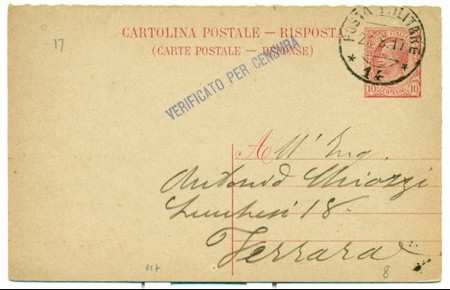 17
CARTOLINA POSTALE - RISPOSTA
(CARTE POSTALE - RÉPONSE)
POSTA MILITARE
* 14 *
VERIFICATO PER CENSURA
10 CENTESIMI 10
All' Ing.
Antonio Chiozzi
18
Ferrara
8